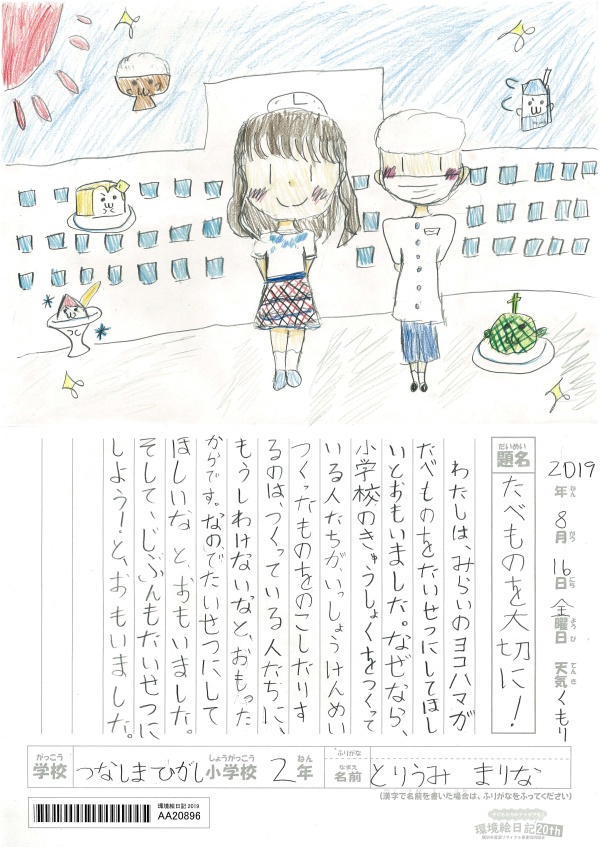 2019
年 ねん
8
月 がつ
16
日 にち
金
曜日 ようび
天気 てんき
くもり
だいめい
題名
たべものを大切に!
わたしは、みらいのヨコハマが
たべものをたいせつにしてほし
いとおもいました。なぜなら、
小学校のきゅうしょくをつくって
いる人たちが、いっしょうけんめい
つくったものをのこしたりす
るのは、つくっている人たちに、
もうしわけないなと、おもった
からです。なのでたいせつにして
ほしいな と、おもいました。
そして、じぶんもたいせつに
しよう!と、おもいました。
がっこう
学校
つなしまひがし
しょうがっこう
小学校
2
ねん
年
ふりがな
なまえ
名前
とりうみ まりな
(漢字で名前を書いた場合は、ふりがなをふってください)
環境絵日記 2019
AA20896
環境絵日記20th